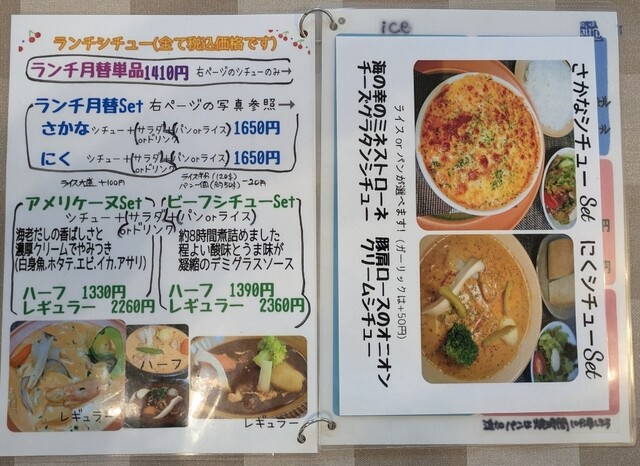 ランチシチュー(全て税込価格です)
ランチ月替単品1410円 右ページのシチューのみ→
ランチ月替Set 右ページの写真参照→
さかな シチュー+(サラダorドリンク)+(パンorライス) 1650円
にく シチュー+(サラダorドリンク)+(パンorライス) 1650円
ライス大盛+100円
アメリケーヌSet ビーフシチューSet
シチュー+(サラダorドリンク)+(パンorライス)
海老だしの香ばしさと
濃厚クリームでやみつき
(白身魚,ホタテ,エビ,イカ,アサリ)
ハーフ 1330円
レギュラー 2260円
約8時間煮詰めました
程よい酸味とうま味が
凝縮のデミグラスソース
ハーフ 1390円
レギュラー 2360円
ハーフ
レギュラー
レギュラー
ice
さかなシチューSet にくシチューSet
ライス or パンが選べます!(ガーリックは+50円)
海の幸のミネストローネ
チーズグラタンシチュー
豚肩ロースのオニオン
クリームシチュー
追加パンは焼時間